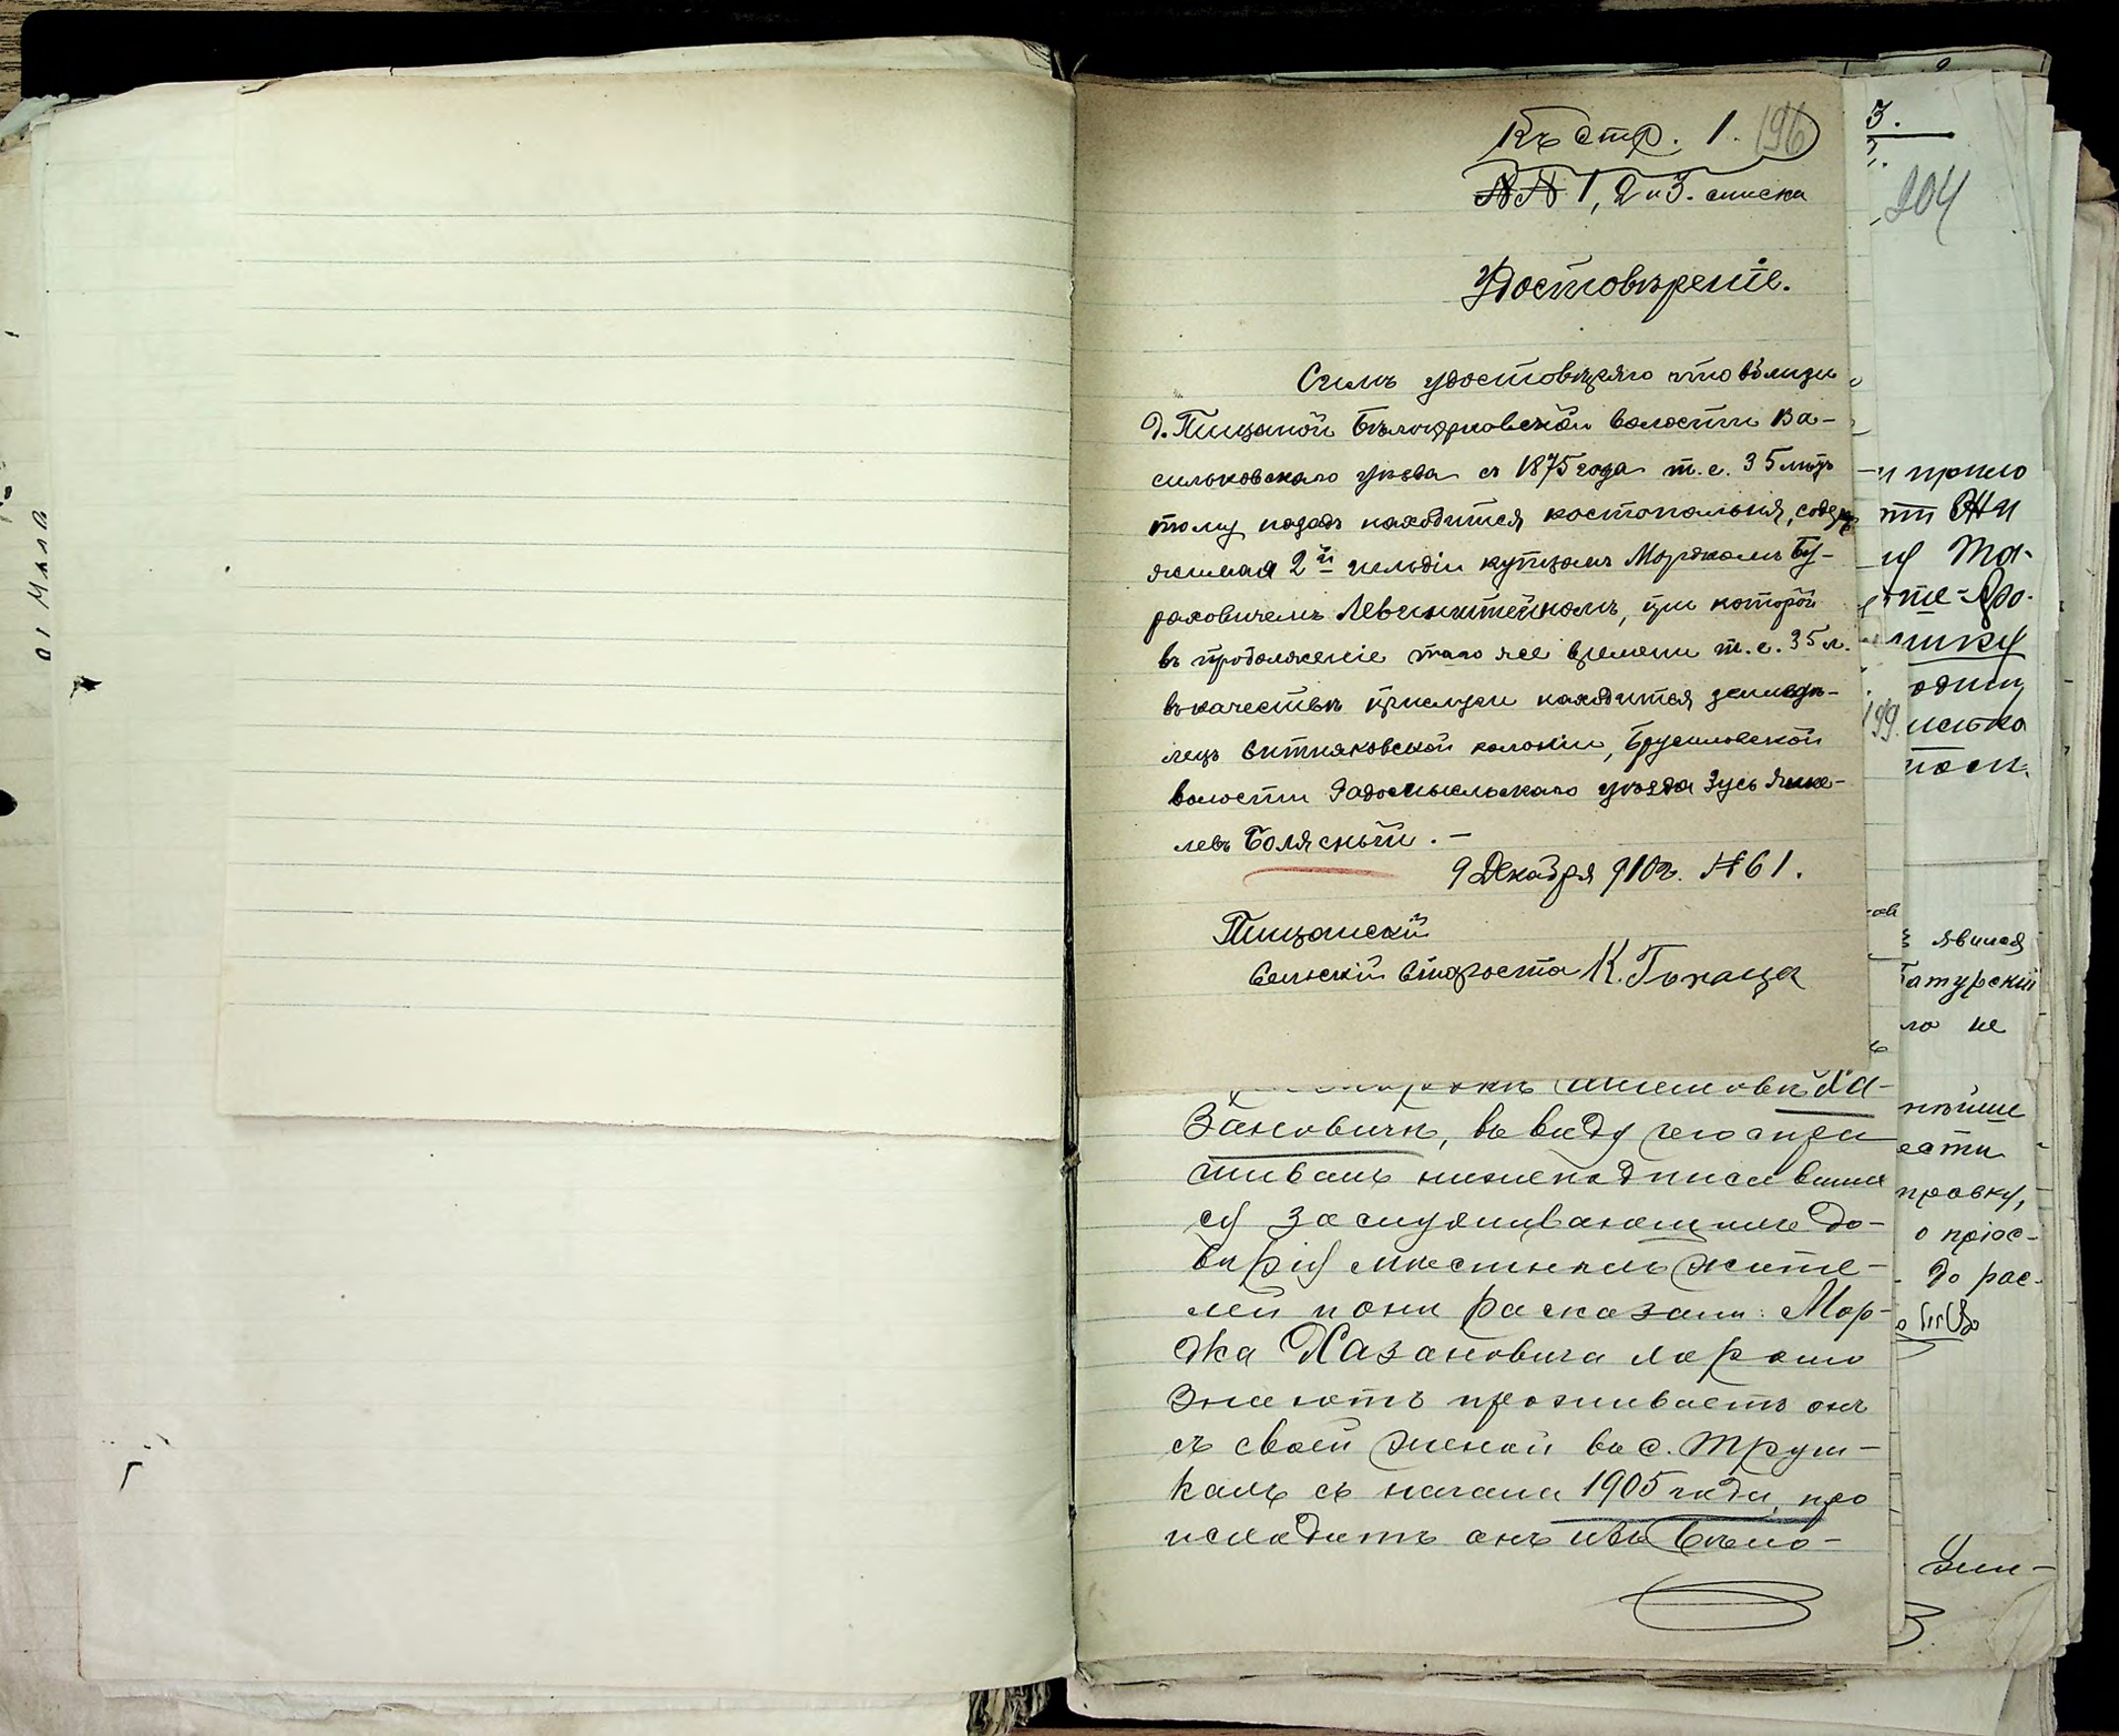 Къ стр. 1. 196
№№ 1, 2 и 3. списка
Удостовѣреніе.
Симъ удостовѣряю что вблизи
д. Пищаной Бѣлоцерковской волости Ва-
сильковскаго уѣзда съ 1875 года т. е. 35 лѣтъ
тому назадъ находится костопальня, содер-
жимая 2й гильдіи купцомъ Мордкомъ Бу-
раховичемъ Левинштейномъ, при которой
въ продолженіе того же времени т. е. 35 л.
въ качествѣ прислуги находится земледѣ-
лецъ Витняковской колоніи, Брусиловской
волости Радомысльскаго уѣзда Зусь Янке-
левъ Болясный. —
9 Декабря 910 г. № 61.
Пищанскій
Сельскій Староста К.
Зановичѣ, въ виду чего спра
шивалъ нижеподписавших
ся заслуживающихъ до-
вѣрія мѣстныхъ жите-
лей и они расказали: Мор-
дка Хазановича хорошо
знаютъ проживаетъ онъ
съ своей женой въ с. Труш-
кахъ съ начала 1905 года, про
исходитъ онъ изъ Бѣло-
3.
204
и прило
ку
199.
явился
атурский
ло не
правку,
о пріос-
до рас-